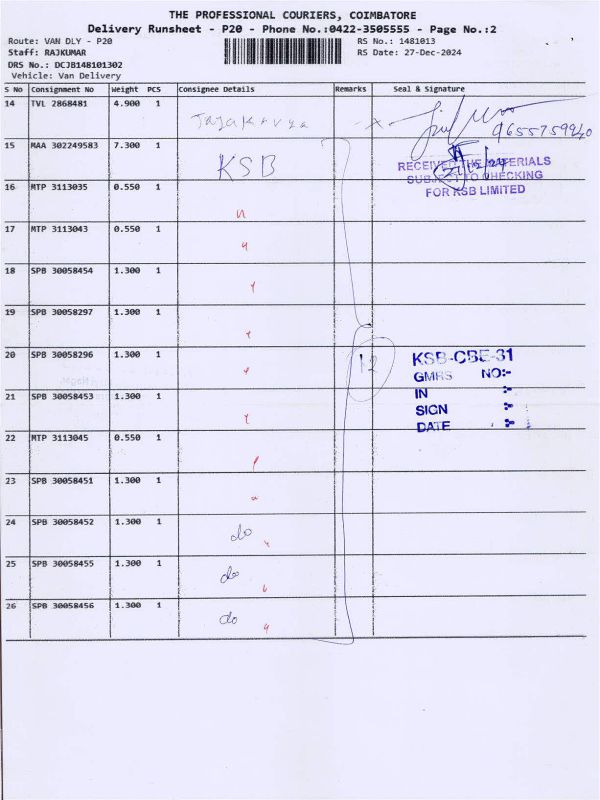 THE PROFESSIONAL COURIERS, COIMBATORE
Delivery Runsheet - P20 - Phone No.:0422-3505555 - Page No.:2
Route: VAN DLY - P20 RS No.: 1481013
Staff: RAJKUMAR RS Date: 27-Dec-2024
DRS No.: DCJB148101302
Vehicle: Van Delivery
S No Consignment No Weight PCS Consignee Details Remarks Seal & Signature
14 TVL 2868481 4.900 1
9655759940
15 MAA 302249583 7.300 1 KSB
RECEIVED THE MATERIALS
SUBJECT TO CHECKING
FOR KSB LIMITED
16 MTP 3113035 0.550 1
17 MTP 3113043 0.550 1
18 SPB 30058454 1.300 1
19 SPB 30058297 1.300 1
20 SPB 30058296 1.300 1 12
KSB-CBE-31
GMRS NO:-
IN :-
SIGN :-
DATE :-
21 SPB 30058453 1.300 1
22 MTP 3113045 0.550 1
23 SPB 30058451 1.300 1
24 SPB 30058452 1.300 1 do
25 SPB 30058455 1.300 1 do
26 SPB 30058456 1.300 1 do